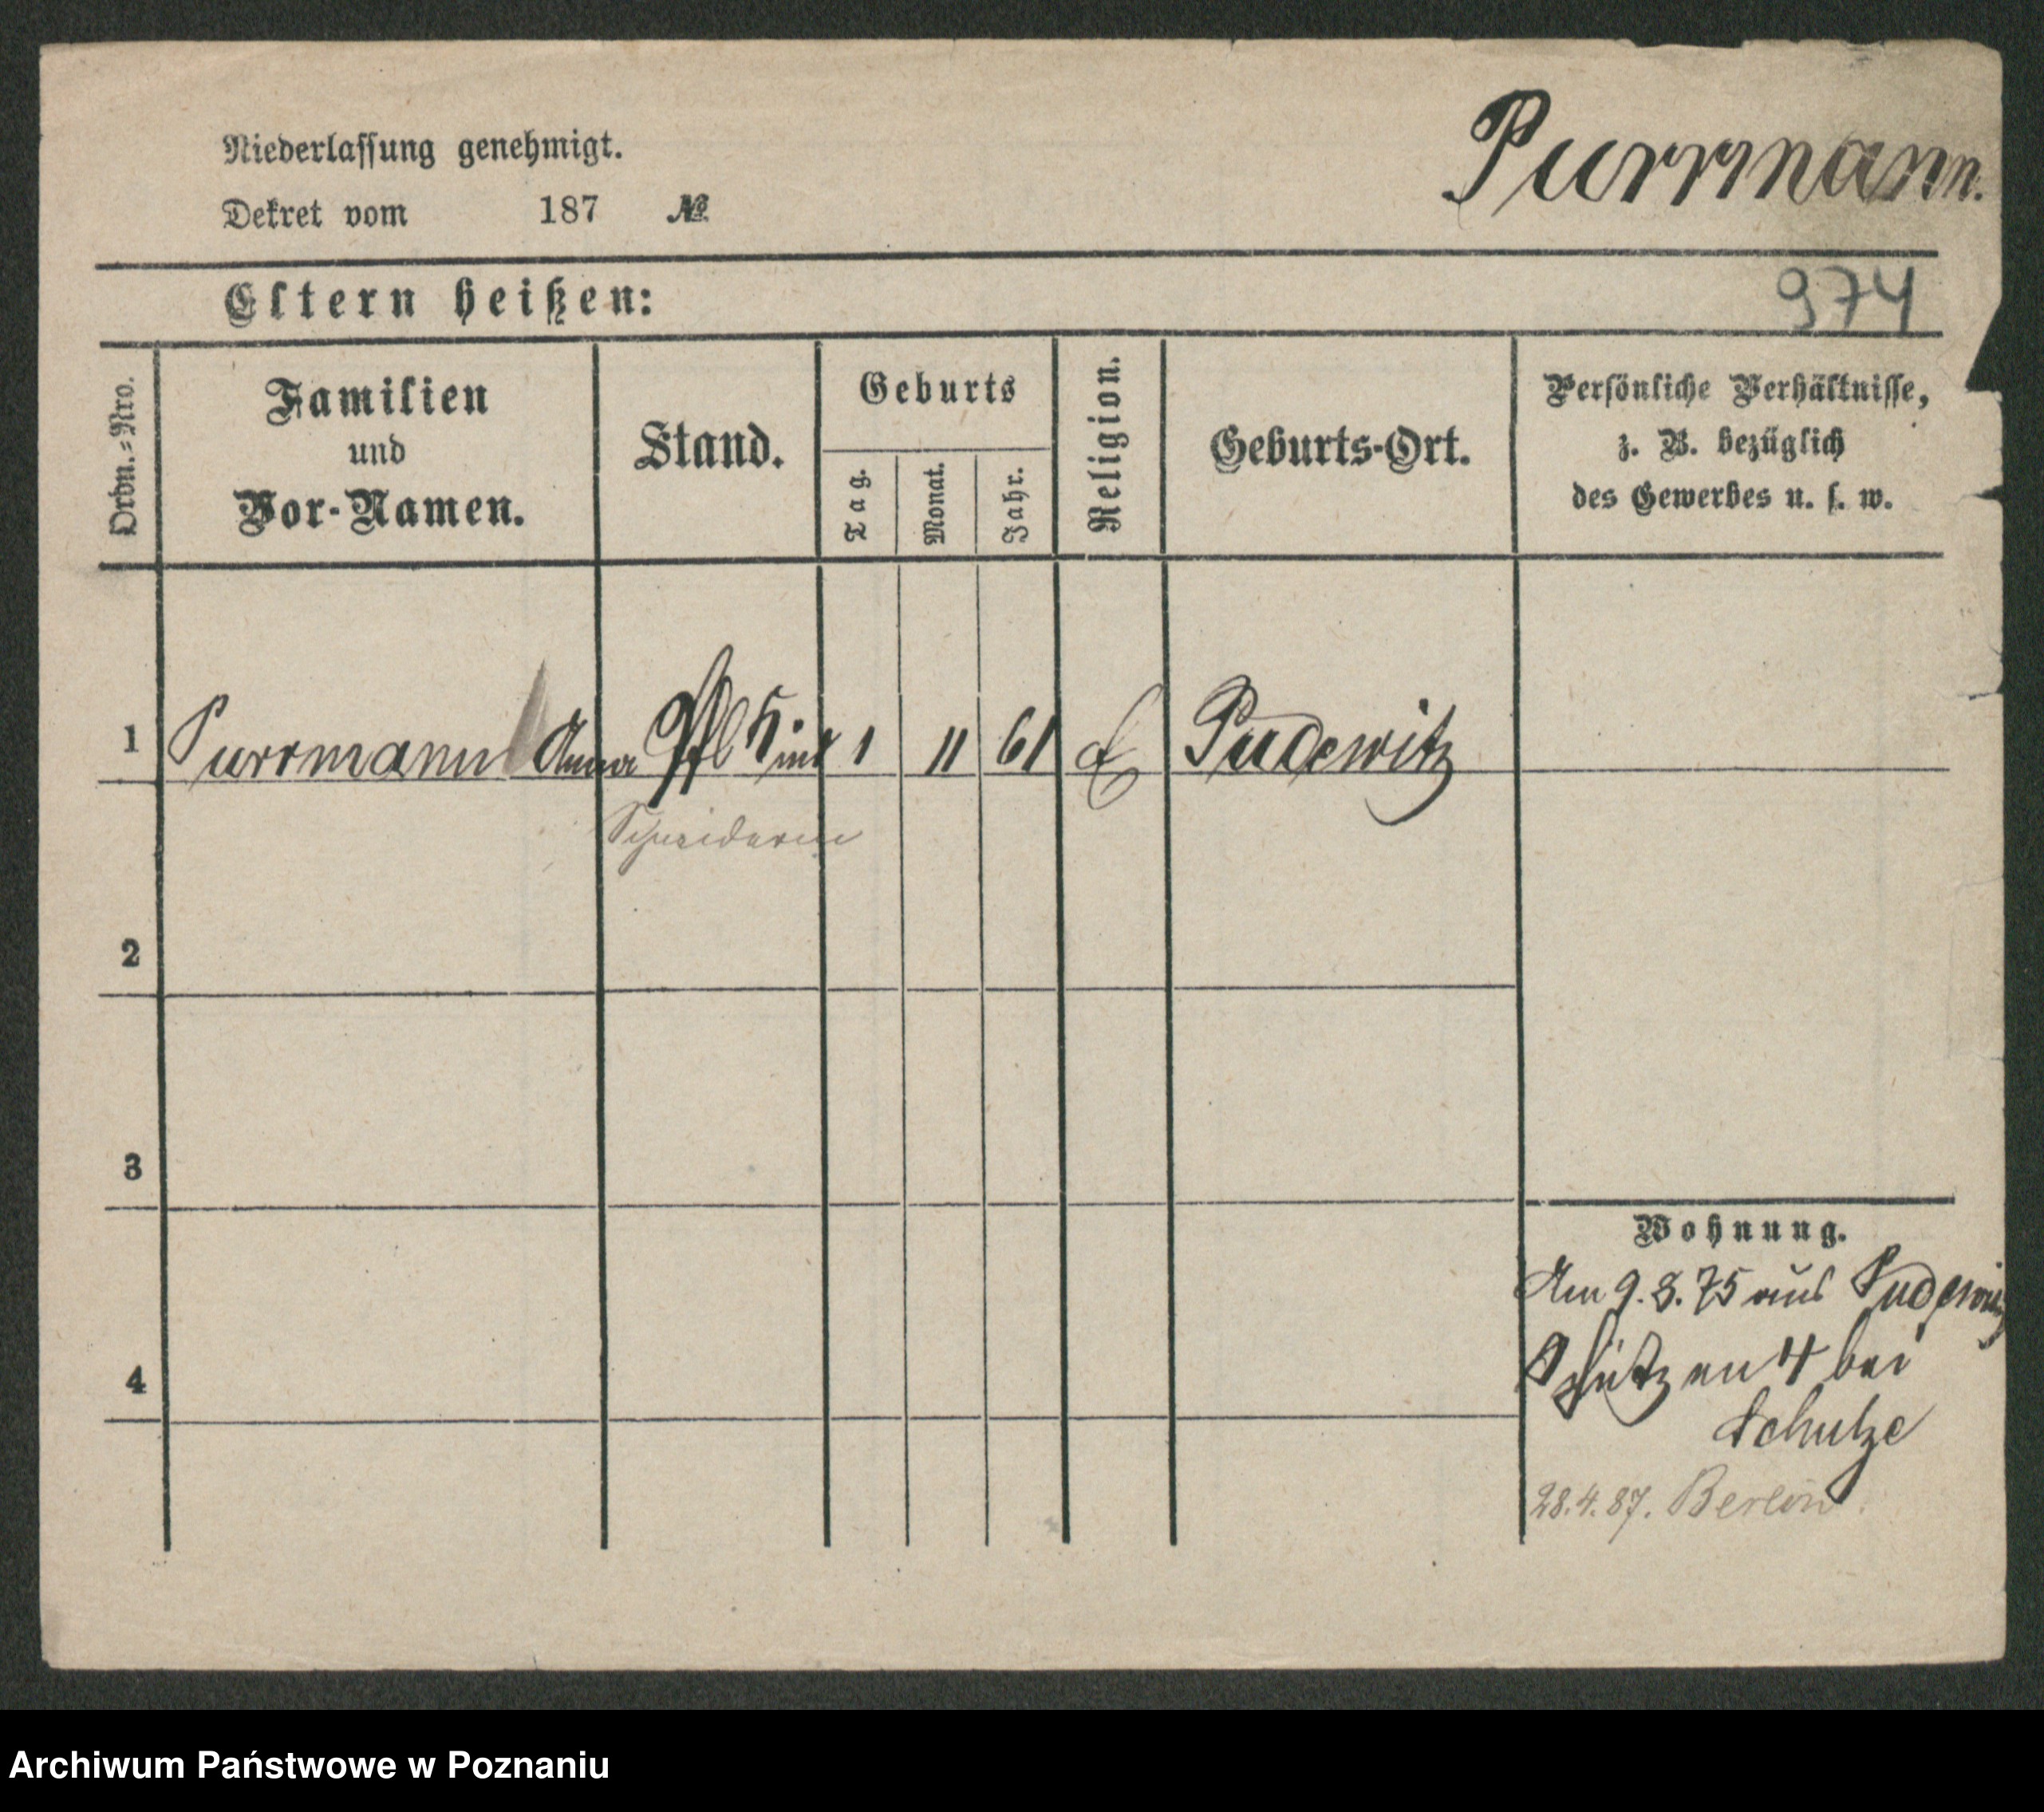 Niederlassung genehmigt.
Purrmann.
Dekret vom 187 №
Eltern heißen:
974
Ordn.=Nro.
Familien
und
Vor-Namen.
Stand.
Geburts
Tag.
Monat.
Jahr.
Religion.
Geburts-Ort.
Persönliche Verhältnisse,
z. B. bezüglich
des Gewerbes u. s. w.
1 Purrmann Anna Pfl Kind 1 11 61 E Pudewitz
Schneiderin
2
3
Wohnung.
Am 9. 8. 75 aus Pudewitz
4 Schützen 4 bei
Schulze
28. 4. 87. Berlin.
Archiwum Państwowe w Poznaniu